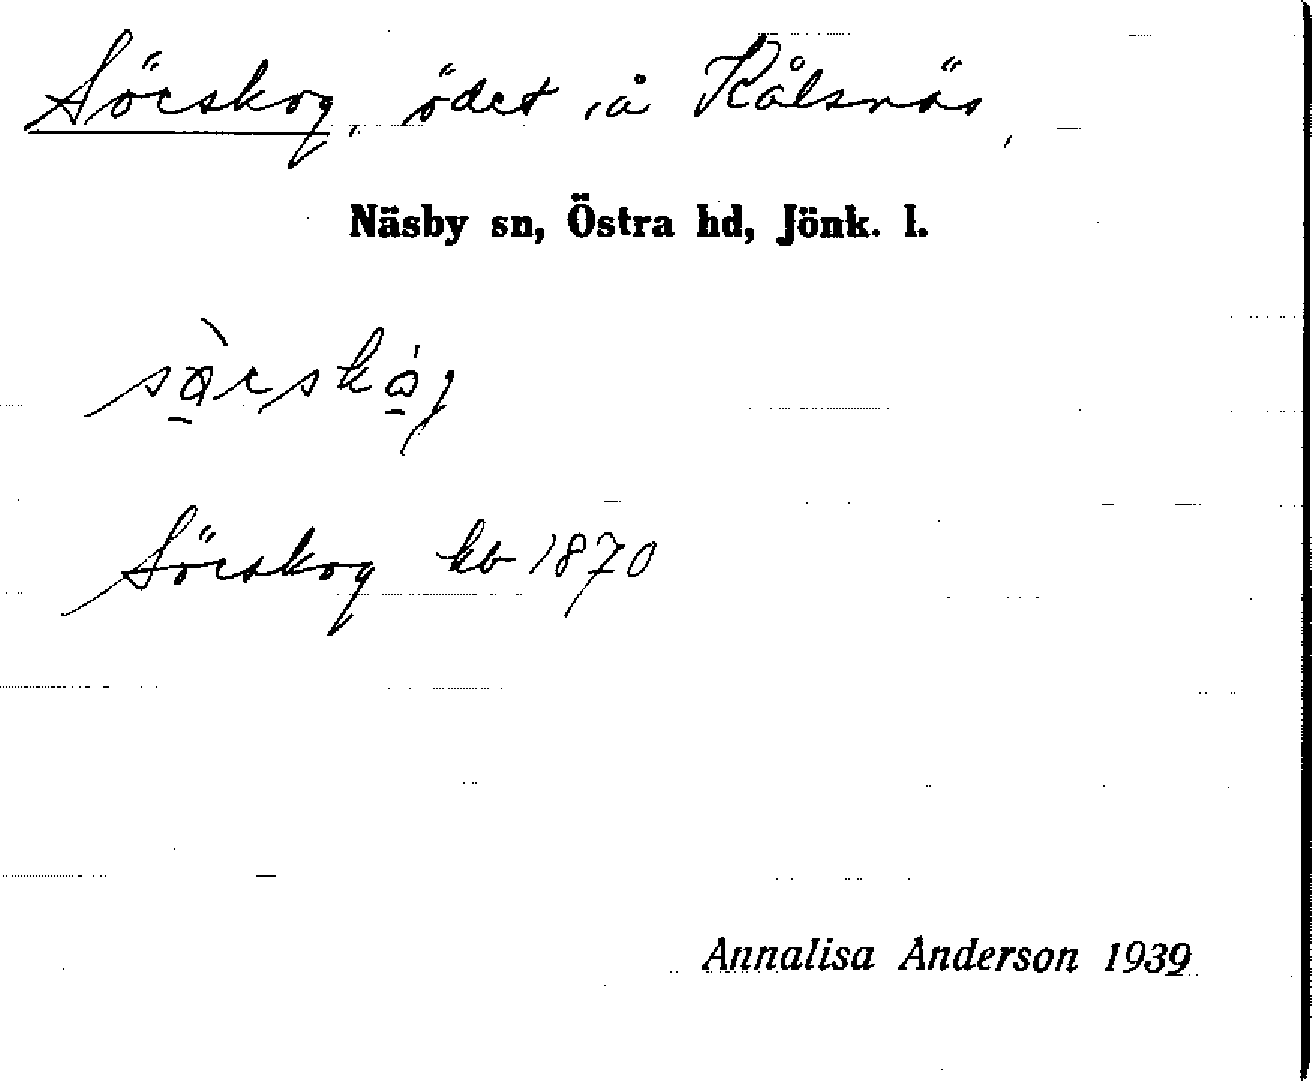 Sörskog, ödet å Kålsnäs,
Näsby sn, Östra hd, Jönk. l.
Sörskog kb 1870
Annalisa Anderson 1939